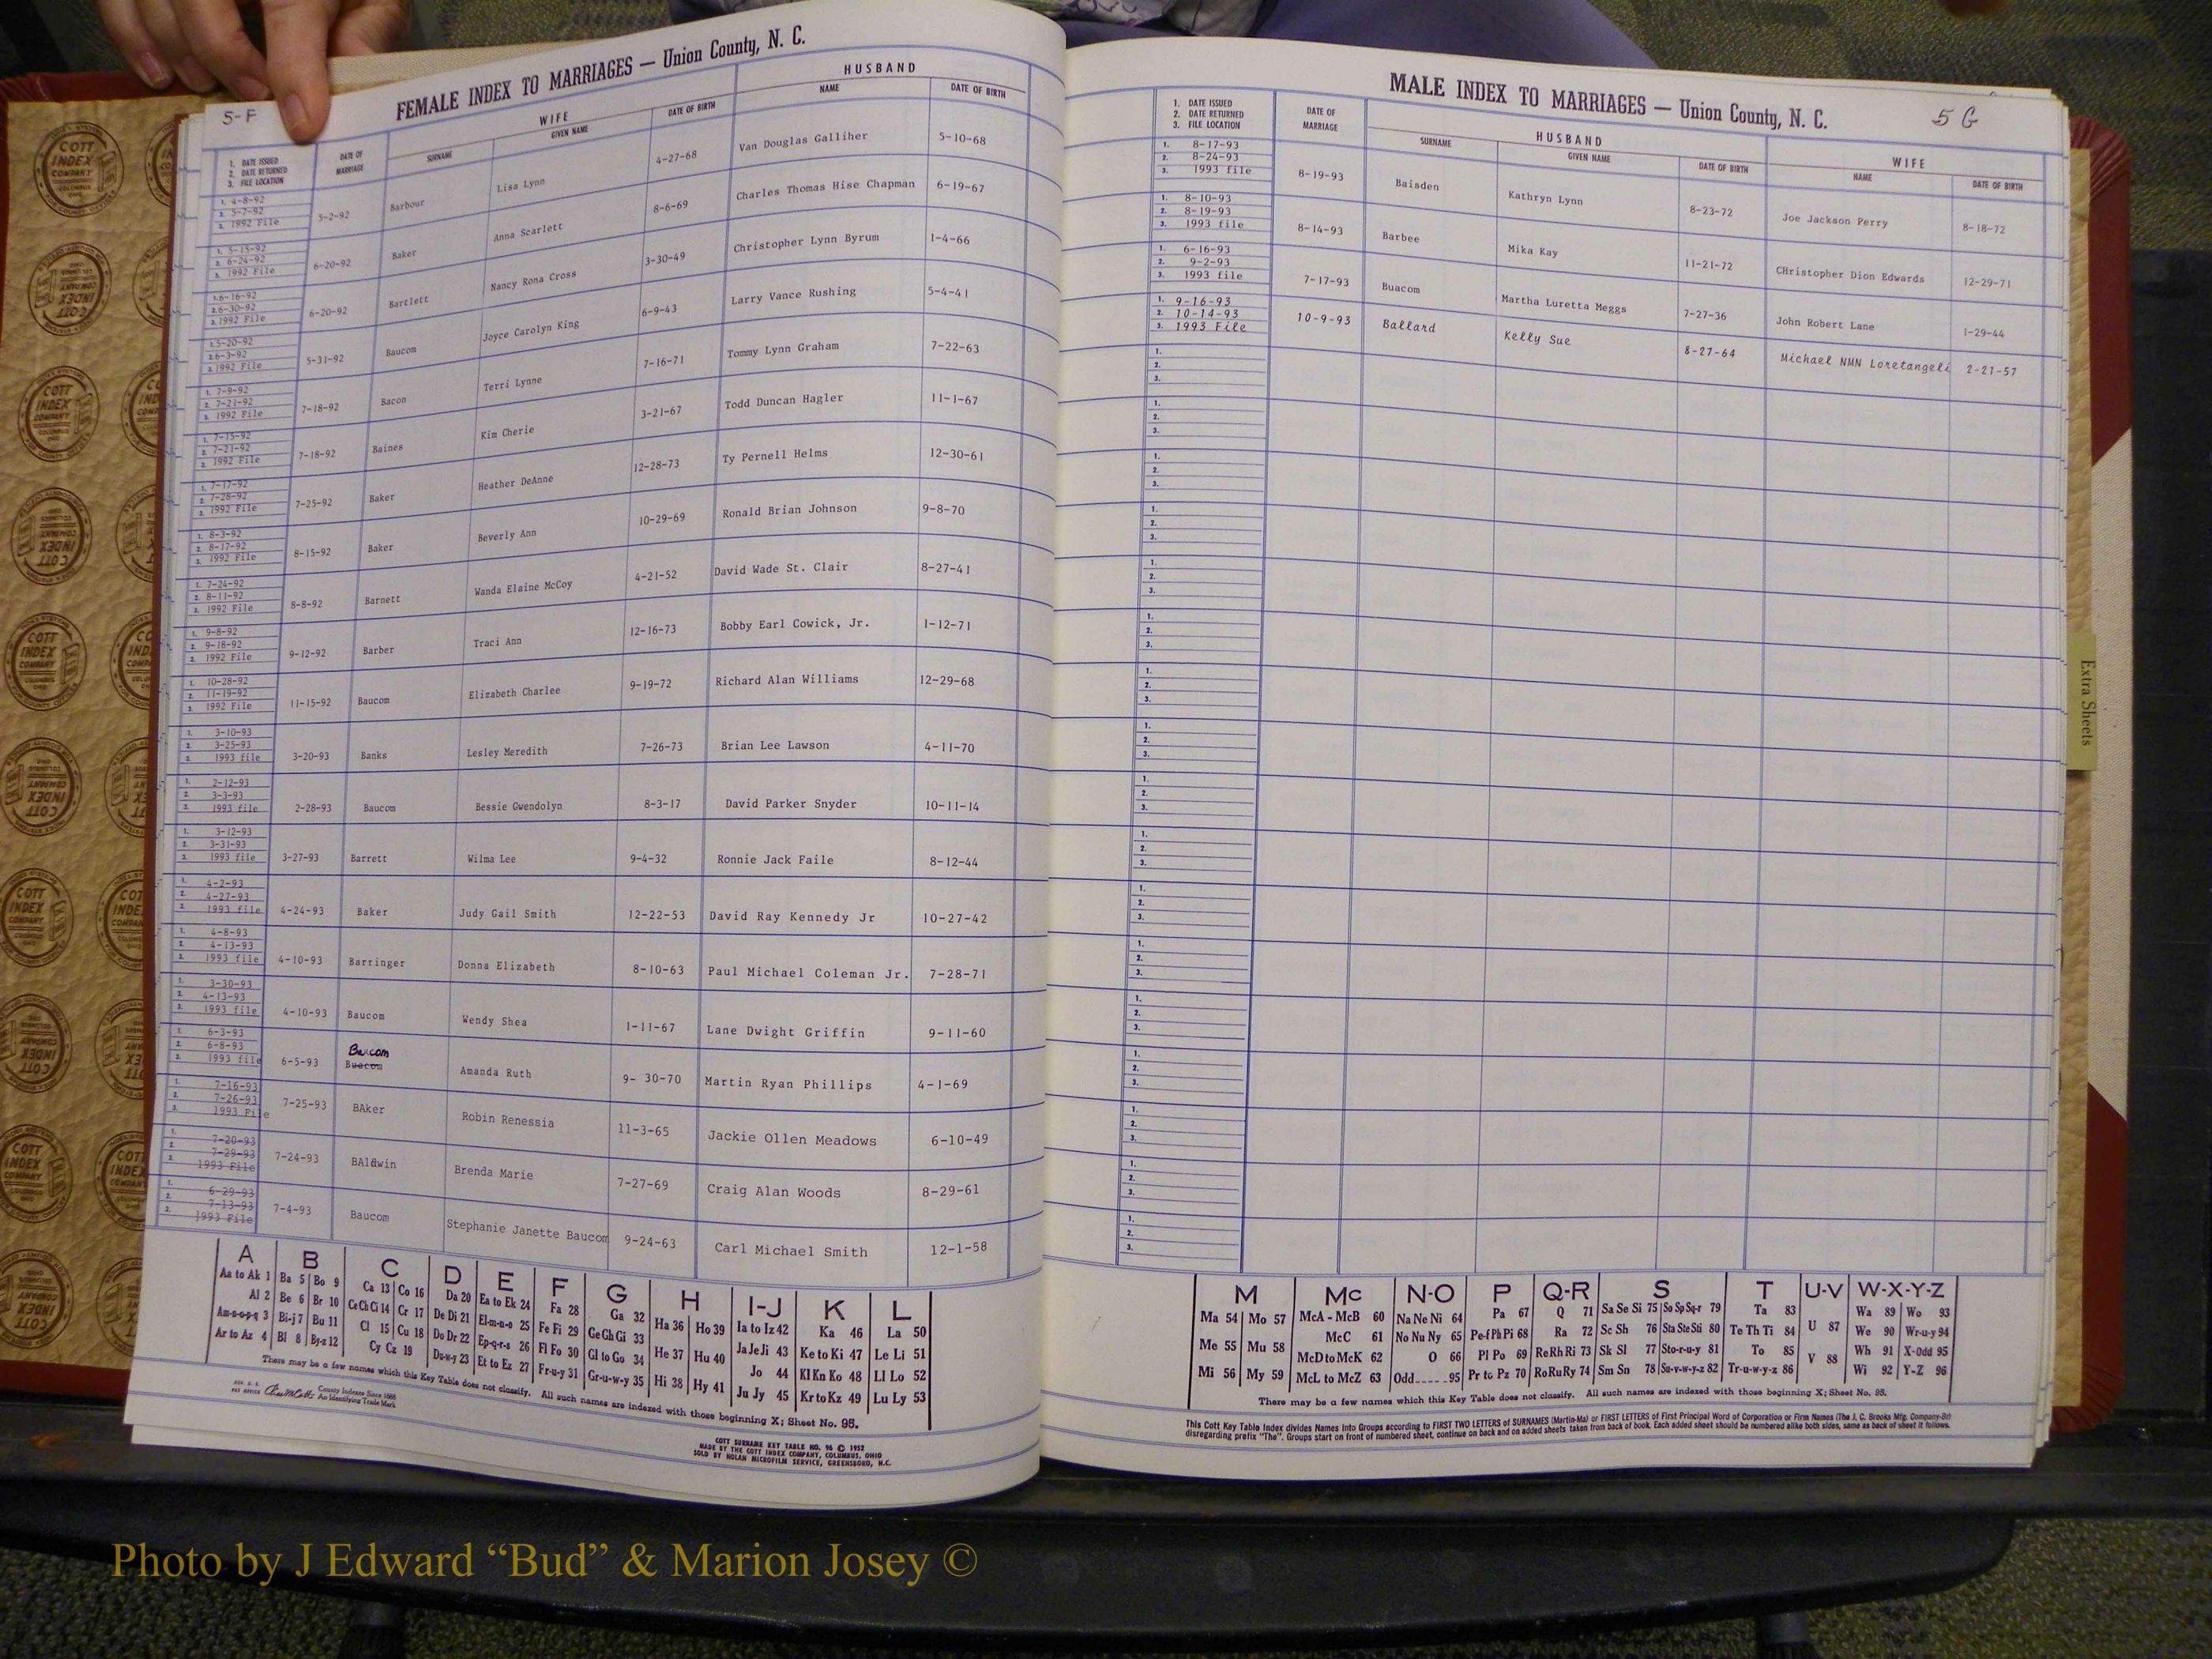 5-F
FEMALE INDEX TO MARRIAGES — Union County, N. C.
1. DATE ISSUED
2. DATE RETURNED
3. FILE LOCATION
DATE OF MARRIAGE
WIFE
SURNAME GIVEN NAME DATE OF BIRTH
HUSBAND
NAME DATE OF BIRTH
1. 4-8-92
2. 5-7-92
3. 1992 File
5-2-92 Barbour Lisa Lynn 4-27-68 Van Douglas Galliher 5-10-68
1. 5-15-92
2. 6-24-92
3. 1992 File
6-20-92 Baker Anna Scarlett 8-6-69 Charles Thomas Hise Chapman 6-19-67
1. 6-16-92
2. 6-30-92
3. 1992 File
6-20-92 Bartlett Nancy Rona Cross 3-30-49 Christopher Lynn Byrum 1-4-66
1. 5-20-92
2. 6-3-92
3. 1992 File
5-31-92 Baucom Joyce Carolyn King 6-9-43 Larry Vance Rushing 5-4-41
1. 7-9-92
2. 7-21-92
3. 1992 File
7-18-92 Bacon Terri Lynne 7-16-71 Tommy Lynn Graham 7-22-63
1. 7-15-92
2. 7-21-92
3. 1992 File
7-18-92 Baines Kim Cherie 3-21-67 Todd Duncan Hagler 11-1-67
1. 7-17-92
2. 7-28-92
3. 1992 File
7-25-92 Baker Heather DeAnne 12-28-73 Ty Pernell Helms 12-30-61
1. 8-3-92
2. 8-17-92
3. 1992 File
8-15-92 Baker Beverly Ann 10-29-69 Ronald Brian Johnson 9-8-70
1. 7-24-92
2. 8-11-92
3. 1992 File
8-8-92 Barnett Wanda Elaine McCoy 4-21-52 David Wade St. Clair 8-27-41
1. 9-8-92
2. 9-18-92
3. 1992 File
9-12-92 Barber Traci Ann 12-16-73 Bobby Earl Cowick, Jr. 1-12-71
1. 10-28-92
2. 11-19-92
3. 1992 File
11-15-92 Baucom Elizabeth Charlee 9-19-72 Richard Alan Williams 12-29-68
1. 3-10-93
2. 3-25-93
3. 1993 file
3-20-93 Banks Lesley Meredith 7-26-73 Brian Lee Lawson 4-11-70
1. 2-12-93
2. 3-3-93
3. 1993 file
2-28-93 Baucom Bessie Gwendolyn 8-3-17 David Parker Snyder 10-11-14
1. 3-12-93
2. 3-31-93
3. 1993 file
3-27-93 Barrett Wilma Lee 9-4-32 Ronnie Jack Faile 8-12-44
1. 4-2-93
2. 4-27-93
3. 1993 file
4-24-93 Baker Judy Gail Smith 12-22-53 David Ray Kennedy Jr 10-27-42
1. 4-8-93
2. 4-13-93
3. 1993 file
4-10-93 Barringer Donna Elizabeth 8-10-63 Paul Michael Coleman Jr. 7-28-71
1. 3-30-93
2. 4-13-93
3. 1993 file
4-10-93 Baucom Wendy Shea 1-11-67 Lane Dwight Griffin 9-11-60
1. 6-3-93
2. 6-8-93
3. 1993 file
Baucom
6-5-93 Buacom Amanda Ruth 9- 30-70 Martin Ryan Phillips 4-1-69
1. 7-16-93
2. 7-26-93
3. 1993 File
7-25-93 BAker Robin Renessia 11-3-65 Jackie Ollen Meadows 6-10-49
1. 7-20-93
2. 7-29-93
3. 1993 File
7-24-93 BAldwin Brenda Marie 7-27-69 Craig Alan Woods 8-29-61
1. 6-29-93
2. 7-13-93
3. 1993 File
7-4-93 Baucom Stephanie Janette Baucom 9-24-63 Carl Michael Smith 12-1-58
A B C D E F G H I-J K L
Aa to Ak 1 Ba 5 Bo 9 Ca 13 Co 16 Da 20 Ea to Ek 24 Fa 28 Ga 32 Ha 36 Ho 39 Ia to Iz 42 Ka 46 La 50
Al 2 Be 6 Br 10 Ce Ch Ci 14 Cr 17 De Di 21 El-m-n-o 25 Fe Fi 29 Ge Gh Gi 33 He 37 Hu 40 Ja Je Ji 43 Ke to Ki 47 Le Li 51
Am-n-o-p-q 3 Bi-j 7 Bu 11 Cl 15 Cu 18 Do Dr 22 Ep-q-r-s 26 Fl Fo 30 Gl to Go 34 Hi 38 Hy 41 Jo 44 Kl Kn Ko 48 Ll Lo 52
Ar to Az 4 Bl 8 By-z 12 Cy Cz 19 Du-w-y 23 Et to Ez 27 Fr-u-y 31 Gr-u-w-y 35 Ju Jy 45 Kr to Kz 49 Lu Ly 53
There may be a few names which this Key Table does not classify. All such names are indexed with those beginning X; Sheet No. 95.
County Indexes Since 1888
An Identifying Trade Mark
COTT SURNAME KEY TABLE NO. 96 © 1952
MADE BY THE COTT INDEX COMPANY, COLUMBUS, OHIO
SOLD BY NOLAN MICROFILM SERVICE, GREENSBORO, N.C.
MALE INDEX TO MARRIAGES — Union County, N. C.
5 G
1. DATE ISSUED
2. DATE RETURNED
3. FILE LOCATION
DATE OF MARRIAGE
HUSBAND
SURNAME GIVEN NAME DATE OF BIRTH
WIFE
NAME DATE OF BIRTH
1. 8-17-93
2. 8-24-93
3. 1993 file
8-19-93 Baisden Kathryn Lynn 8-23-72 Joe Jackson Perry 8-18-72
1. 8-10-93
2. 8-19-93
3. 1993 file
8-14-93 Barbee Mika Kay 11-21-72 CHristopher Dion Edwards 12-29-71
1. 6-16-93
2. 9-2-93
3. 1993 file
7-17-93 Buacom Martha Luretta Meggs 7-27-36 John Robert Lane 1-29-44
1. 9-16-93
2. 10-14-93
3. 1993 File
10-9-93 Ballard Kelly Sue 8-27-64 Michael NMN Loretangeli 2-21-57
Extra Sheets
M Mc N-O P Q-R S T U-V W-X-Y-Z
Ma 54 Mo 57 McA - McB 60 Na Ne Ni 64 Pa 67 Q 71 Sa Se Si 75 So Sp Sq-r 79 Ta 83 U 87 Wa 89 Wo 93
Me 55 Mu 58 McC 61 No Nu Ny 65 Pe-f Ph Pi 68 Ra 72 Sc Sh 76 Sta Ste Sti 80 Te Th Ti 84 V 88 We 90 Wr-u-y 94
Mi 56 My 59 McD to McK 62 O 66 Pl Po 69 Re Rh Ri 73 Sk Sl 77 Sto-r-u-y 81 To 85 Wh 91 X-Odd 95
McL to McZ 63 Odd 95 Pr to Pz 70 Ro Ru Ry 74 Sm Sn 78 Su-v-w-y-z 82 Tr-u-w-y-z 86 Wi 92 Y-Z 96
There may be a few names which this Key Table does not classify. All such names are indexed with those beginning X; Sheet No. 95.
This Cott Key Table Index divides Names into Groups according to FIRST TWO LETTERS of SURNAMES (Martin-Ma) or FIRST LETTERS of First Principal Word of Corporation or Firm Names (The J. C. Brooks Mfg. Company-Br)
disregarding prefix "The". Groups start on front of numbered sheet, continue on back and on added sheets taken from back of book. Each added sheet should be numbered alike both sides, same as back of sheet it follows.
COTT INDEX COMPANY
Photo by J Edward “Bud” & Marion Josey ©